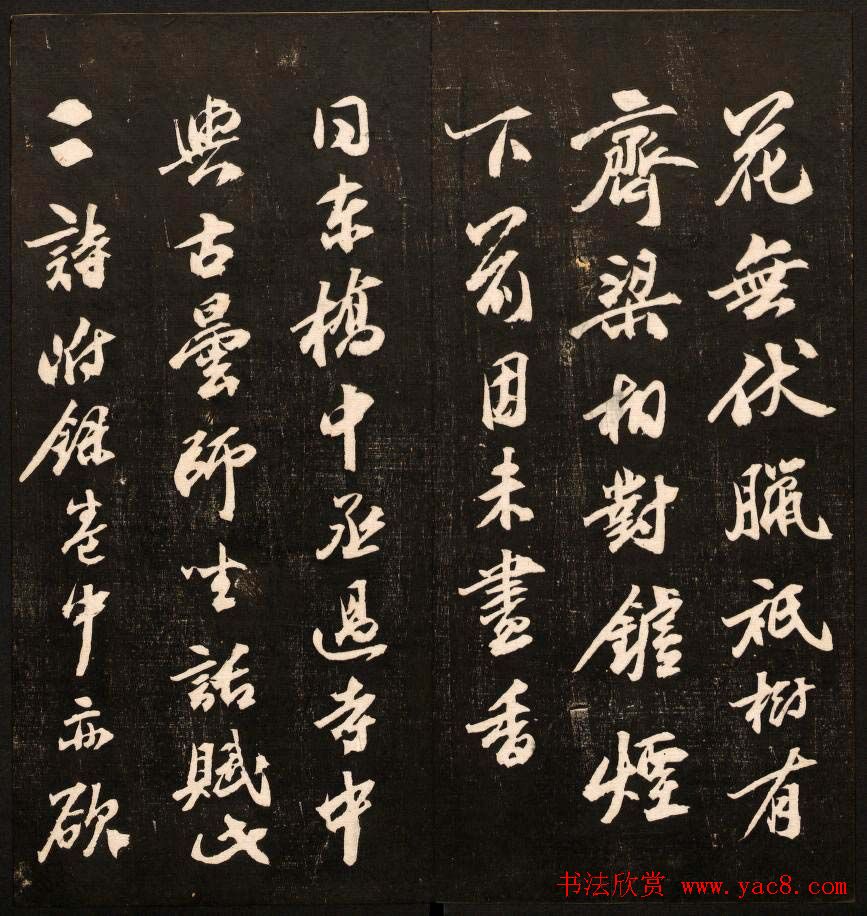 花無伏臘祇樹有
齊梁相對鑪煙
下前因未盡香
同東橋中丞過寺中
與古曇師坐話賦此
二詩附錄卷中亦欲
书法欣赏 www.yac8.com